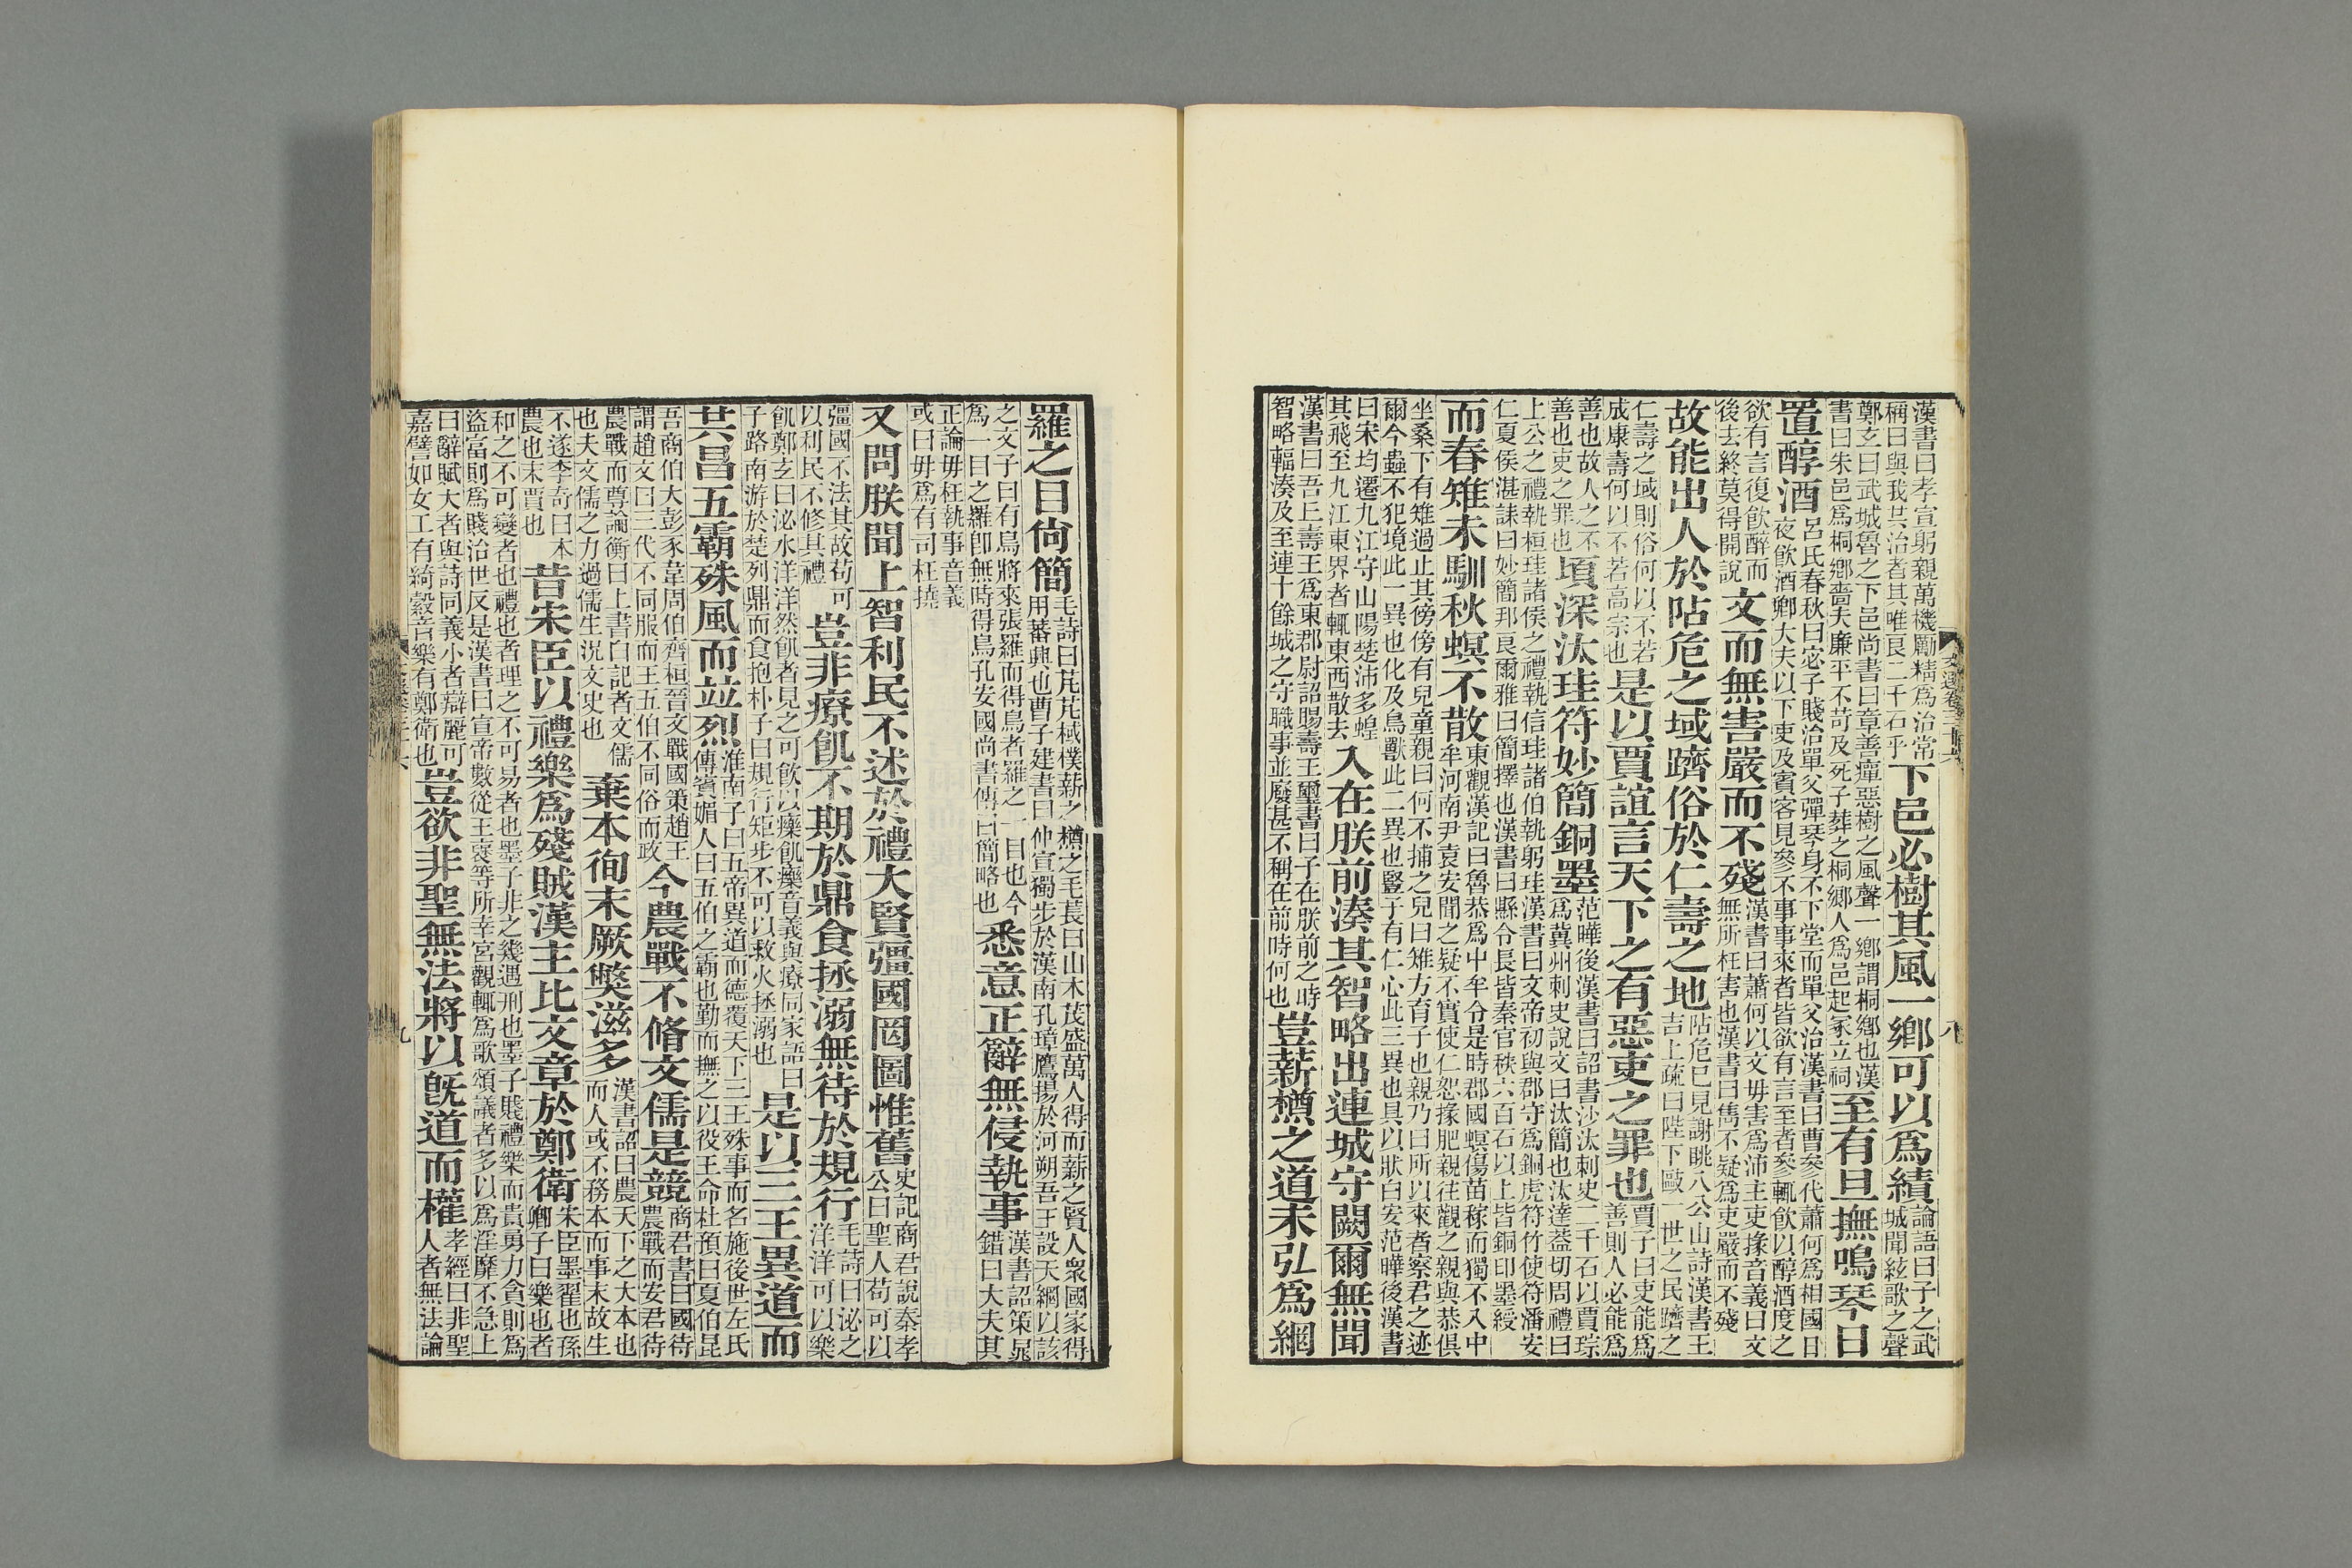 漢書曰孝宣躬親萬機勵精爲治常
稱曰與我共治者其唯良二千石乎
下邑必樹其風一鄉可以爲績
論語曰子之武
城聞絃歌之聲
鄭玄曰武城魯之下邑尚書曰章善癉惡樹之風聲一鄉謂桐鄉也漢
書曰朱邑爲桐鄉嗇夫廉平不苛及死子葬之桐鄉人爲邑起冢立祠
至有旦撫鳴琴日
置醇酒
呂氏春秋曰宓子賤治單父彈琴身不下堂而單父治漢書曰曹參代蕭何爲相國日
夜飲酒卿大夫以下吏及賓客見參不事事來者皆欲有言至者參輒飲以醇酒度之
欲有言復飲醉而
後去終莫得開說
文而無害嚴而不殘
漢書曰蕭何以文毋害爲沛主吏掾音義曰文
無所枉害也漢書曰雋不疑爲吏嚴而不殘
故能出人於阽危之域躋俗於仁壽之地
阽危已見謝眺八公山詩漢書王
吉上疏曰陛下敺一世之民躋之
仁壽之域則俗何以不若
成康壽何以不若高宗也
是以賈誼言天下之有惡吏之罪也
賈子曰吏能爲
善則人必能爲
善也故人之不
善也吏之罪也
頃深汰珪符妙簡銅墨
范曄後漢書曰詔書沙汰刺史二千石以賈琮
爲冀州刺史說文曰汰簡也汰達葢切周禮曰
上公之禮執桓珪諸侯之禮執信珪諸伯執躬珪漢書曰文帝初與郡守爲銅虎符竹使符潘安
仁夏侯湛誄曰妙簡邦良爾雅曰簡擇也漢書曰縣令長皆秦官秩六百石以上皆銅印墨綬
而春雉未馴秋螟不散
東觀漢記曰魯恭爲中牟令是時郡國螟傷苗稼而獨不入中
牟河南尹袁安聞之疑不實使仁恕掾肥親往觀之親與恭俱
坐桑下有雉過止其傍傍有兒童親曰何不捕之兒曰雉方育子也親乃曰所以來者察君之迹
爾今蟲不犯境此一異也化及鳥獸此二異也豎子有仁心此三異也具以狀白安范曄後漢書
曰宋均遷九江守山陽楚沛多蝗
其飛至九江東界者輒東西散去
入在朕前湊其智略出連城守闕爾無聞
漢書曰吾丘壽王爲東郡尉詔賜壽王璽書曰子在朕前之時
智略輻湊及至連十餘城之守職事並廢甚不稱在前時何也
豈薪槱之道未弘爲網
羅之目尙簡
毛詩曰芃芃棫樸薪之槱之毛萇曰山木茂盛萬人得而薪之賢人衆國家得
用蕃興也曹子建書曰仲宣獨步於漢南孔璋鷹揚於河朔吾王設天網以該
之文子曰有鳥將來張羅而得鳥者羅之一目也今
爲一目之羅卽無時得鳥孔安國尚書傳曰簡略也
悉意正辭無侵執事
漢書詔策晁
錯曰大夫其
正論毋枉執事音義
或曰毋爲有司枉撓
又問朕聞上智利民不述於禮大賢彊國罔圖惟舊
史記商君說秦孝
公曰聖人苟可以
彊國不法其故苟可
以利民不修其禮
豈非療飢不期於鼎食拯溺無待於規行
毛詩曰泌之
洋洋可以樂
飢鄭玄曰泌水洋洋然飢者見之可飲以𤻲飢𤻲音義與療同家語曰
子路南游於楚列鼎而食抱朴子曰規行矩步不可以救火拯溺也
是以三王異道而
共昌五霸殊風而竝烈
淮南子曰五帝異道而德覆天下三王殊事而名施後世左氏
傳賓媚人曰五伯之霸也勤而撫之以役王命杜預曰夏伯昆
吾商伯大彭豕韋周伯齊桓晉文戰國策趙王
謂趙文曰三代不同服而王五伯不同俗而政
今農戰不脩文儒是競
商君書曰國待
農戰而安君待
農戰而尊論衡曰上書白記者文儒
也夫文儒之力過儒生況文吏也
棄本徇末厥獘滋多
漢書詔曰農天下之大本也
而人或不務本而事末故生
不遂李奇曰本
農也末賈也
昔宋臣以禮樂爲殘賊漢主比文章於鄭衛
宋臣墨翟也孫
卿子曰樂也者
和之不可變者也禮也者理之不可易者也墨子非之幾遇刑也墨子賤禮樂而貴勇力貪則爲
盜富則爲賤治世反是漢書曰宣帝數從王襃等所幸宮觀輒爲歌頌議者多以爲淫靡不急上
曰辭賦大者與詩同義小者辯麗可
嘉譬如女工有綺縠音樂有鄭衛也
豈欲非聖無法將以旣道而權
孝經曰非聖
人者無法論
文選卷三十六
八
九